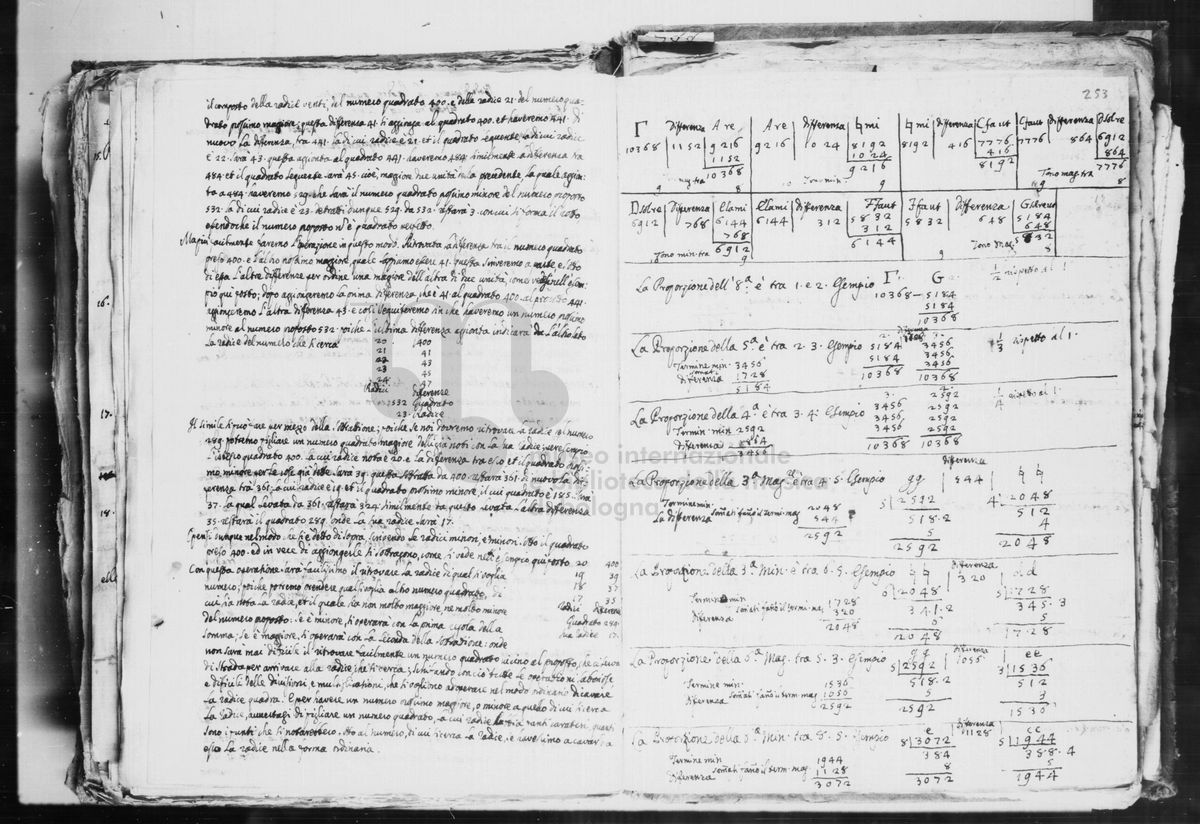 il composto della radice venti, del numero quadrato 400. e della radice 21. del numero qua-
drato prossimo maggiore; questa differenza 41. si aggionga al quadrato 400. et haveremo 441. di
nuovo la differenza, tra 441. la di cui radice è 21. et il quadrato seguente, la di cui radice
è 22. sarà 43. questa aggionta al quadrato 441. haveremo 484. similmente la differenza tra
484. et il quadrato seguente sarà 45. cioè, maggiore due unità della precedente, la quale aggion-
ta a 484. haveremo 529. che sarà il numero quadrato prossimo minore del numero proposto
532. la di cui radice è 23. detratti dunque 529. da 532. restarà 3. con cui si forma il rotto
essendo che il numero proposto non è quadrato perfetto.
Ma più facilmente faremo l'operazione in questo modo. Ritrovata la differenza tra il numero quadrato
preso 400. e l'altro prossimo maggiore, quale sappiamo essere 41. questa scriveremo a parte, e sotto
di essa l'altre differenze per ordine una maggiore dell'altra di due unità, come vedesi nell'esem-
pio qui sotto; dopo aggiongeremo la prima differenza, che è 41. al quadrato 400. al prodotto 441.
aggiongeremo l'altra differenza 43. e così seguiteremo sin che haveremo un numero prossimo
minore al numero proposto 532. poiche l'ultima differenza aggionta indicarà da l'altro lato
la radice del numero che si cerca
20. 400
21 41
22 43
23 45
24. 47
Radici Differenze
532 Quadrato
23. Radice
289. potremo pigliare un numero quadrato maggiore delli già noti con la sua radice; per esempio
l'istesso quadrato 400. la cui radice nota è 20. e la differenza tra esso et il quadrato prossi-
mo minore per le cose già dette sarà 39. questa detratta da 400. restarà 361. di nuovo la dif-
ferenza tra 361. la cui radice è 19. et il quadrato prossimo minore, il cui quadrato è 18. sarà
37. la qual levata da 361. restarà 324. similmente da questo levata l'altra differenza
35. restarà il quadrato 289. onde la sua radice sarà 17.
preso 400. ed in vece di aggiongerle si sottrarono, come si vede nell'esempio qui posto
20 400
19 39
18 37
17 35
Radici Differenze
Quadrato 289.
sua radice 17.
Con questa operatione sarà facilissimo il ritrovare la radice di qual si voglia
numero; poiche potremo prendere qualsivoglia altro numero quadrato, di
cui sia nota la radice, et il quale sia non molto maggiore, ne molto minore
del numero proposto: se è minore, si operarà con la prima regola della
somma; se è maggiore, si operarà con la seconda della sottratione: onde
non sarà mai difficile il ritrovare facilmente un numero quadrato vicino al proposto, che ci serva
di strada per arrivare alla radice, che si cerca; schivando con ciò tutte le operationi laboriose
e difficili delle divisioni e multiplicationi, che si sogliono adoperare nel modo ordinario di cavare
la radice quadra. E per havere un numero prossimo maggiore, o minore a quello di cui si cerca
la radice, avvertasi di pigliare un numero quadrato, la cui radice habbia tanti caratteri, quanti
sono i punti che si notarebbero sotto al numero, di cui si cerca la radice, se havessimo a cavar da
esso la radice nella forma ordinaria.
253
Γ Differenza A re
10368 1152 9216
1152
10368
9 mag. tra 8
A re differenza ♮ mi
9216 1024 8192
1024
9216
♮ mi differenza C faut
8192 416 7776
416
8192
C faut Differenza D solre
7776 864 6912
864
7776
Tono mag. tra
9 8
D solre Differenza Elami
6912 768 6144
768
6912
Tono min. tra 9
Elami differenza F faut
6144 312 5832
312
6144
F faut Differenza G solreut
5832 648 5184
648
5832
9 Tono mag. 8
La Proporzione dell'8ª è tra 1. e 2. Esempio Γ. G
10368 — 5184
5184
10368
1/2 rispetto al 1.
La Proporzione della 5ª è tra 2. 3. Esempio
5184 3456
5184 3456
3456
10368 10368
Termine min. 3456
differenza 1728
5184
1/3 rispetto al 1.
La Proporzione della 4ª è tra 3. 4. Esempio
3456 2592
3456 2592
3456 2592
2592
10368 10368
Termin. min 2592
differenza 864
3456
1/4 rispetto al 1.
La Proporzione della 3ª Mag.e è tra 4. 5. Esempio gg differenza 544 ♮ ♮
5 2592 4 2048
518.2 512
5 4
2592 2048
Termine min. 2048
La differenza 544
2592
La Proporzione della 3ª Min. è tra 6. 5. Esempio ♮ ♮ Differenza 320 dd
6 2048 5 1728
341.2 345.3
6 5
2048 1728
Termine min 1728
differenza 320
2048
La Proporzione della 6ª Mag. tra 5. 3. Esempio gg Differenza 1056 ee
5 2592 3 1536
518.2 512
5 3
2592 1536
Termine min. 1536
differenza 1056
2592
La Proporzione della 6ª Min. tra 8. 5. Esempio e Differenza 1128 cc
8 3072 5 1944
384 388.4
8 5
3072 1944
Termine min 1944
differenza 1128
3072
museo internazionale
e biblioteca della musica
di bologna